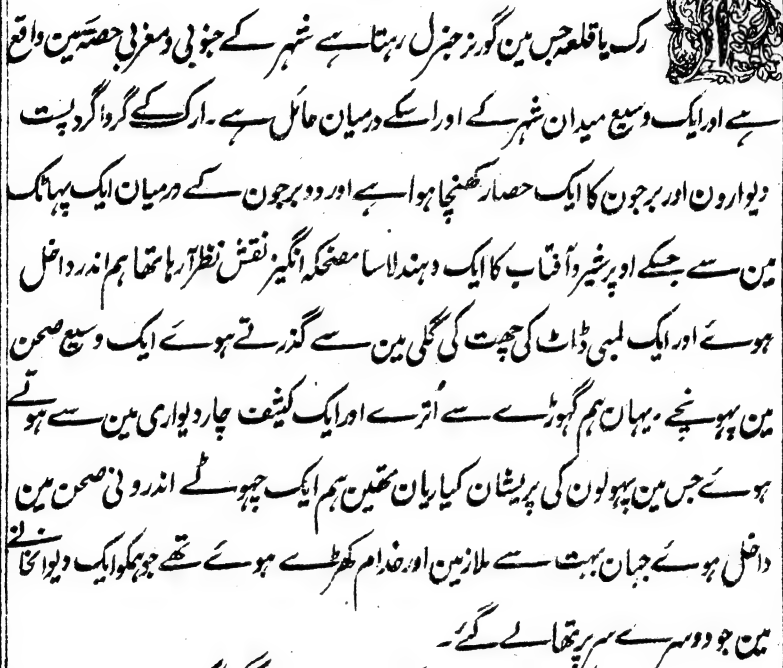 رک یا قلعہ جس مین گورنر جنرل رہتا ہے شہر کے جنوبی و مغربی حصہ مین واقع
ہے اور ایک وسیع میدان شہر کے اور اسکے درمیان حائل ہے ۔ ارک کے گرداگرد پست
دیوارون اور برجون کا ایک حصار کھنچا ہوا ہے اور دو برجون کے درمیان ایک پہاٹک
مین سے جسکے اوپر شیر و آفتاب کا ایک دہندلا سا مضحکہ انگیز نقش نظر آرہا تھا ہم اندر داخل
ہوئے اور ایک لمبی ڈاٹ کی چھت کی گلی مین سے گذرتے ہوئے ایک وسیع صحن
مین پہونچے ۔ یہان ہم گہوڑے سے اُترے اور ایک کثیف چار دیواری مین سے ہوتے
ہوئے جس مین پہولون کی پریشان کیاریان تھین ہم ایک چہوٹے اندرونی صحن مین
داخل ہوئے جہان بہت سے ملازمین اور خدام کھڑے ہوئے تھے جو ہمکو ایک دیوانخانے
مین جو دوسرے سرے پر تھا لے گئے ۔